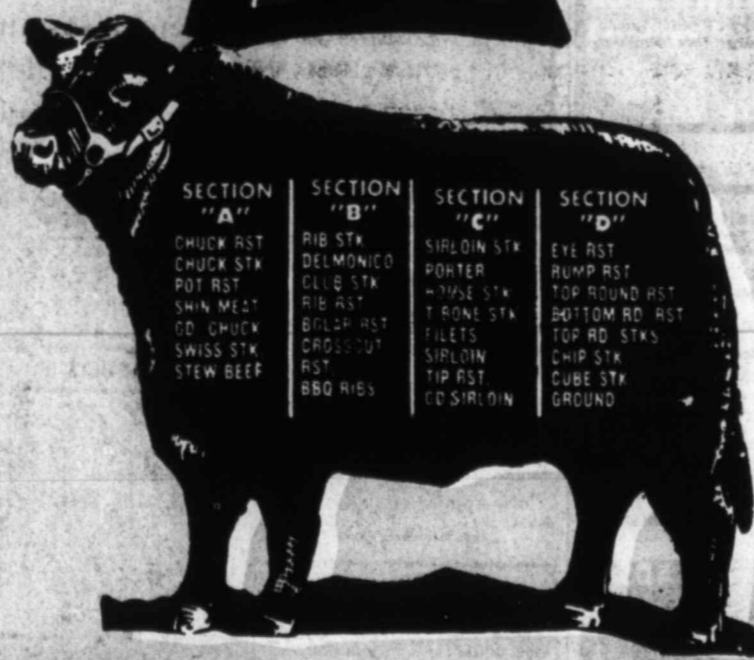 SECTION
"A"
CHUCK RST
CHUCK STK
POT RST
SHIN MEAT
GD. CHUCK
SWISS STK
STEW BEEF
SECTION
"B"
RIB STK
DELMONICO
CLUB STK
RIB RST
BOLAR RST
CROSSCUT
RST.
BBQ RIBS
SECTION
"C"
SIRLOIN STK
PORTER
HOUSE STK
T-BONE STK
FILETS
SIRLOIN
TIP RST.
GD SIRLOIN
SECTION
"D"
EYE RST
RUMP RST
TOP ROUND RST
BOTTOM RD. RST
TOP RD. STKS
CHIP STK
CUBE STK
GROUND